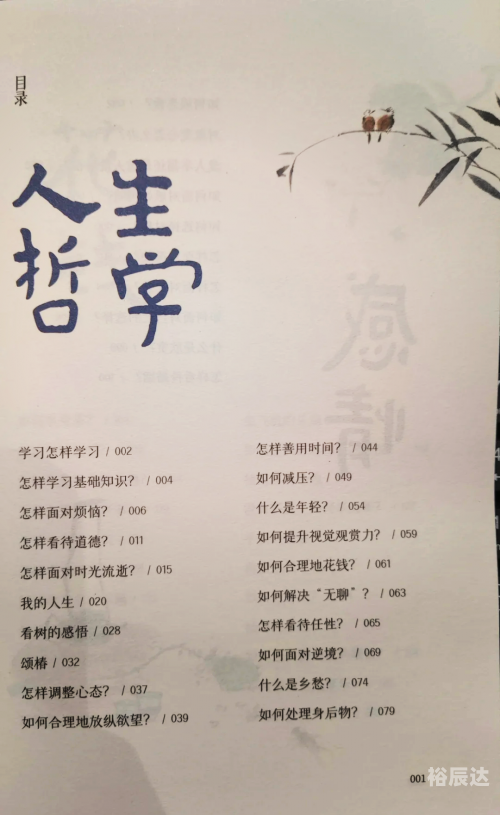 目录
人生
哲学
学习怎样学习 / 002
怎样学习基础知识？ / 004
怎样面对烦恼？ / 006
怎样看待道德？ / 011
怎样面对时光流逝？ / 015
我的人生 / 020
看树的感悟 / 028
颂椿 / 032
怎样调整心态？ / 037
如何合理地放纵欲望？ / 039
怎样善用时间？ / 044
如何减压？ / 049
什么是年轻？ / 054
如何提升视觉观赏力？ / 059
如何合理地花钱？ / 061
如何解决“无聊”？ / 063
怎样看待任性？ / 065
如何面对逆境？ / 069
什么是乡愁？ / 074
如何处理身后物？ / 079
001
裕辰达